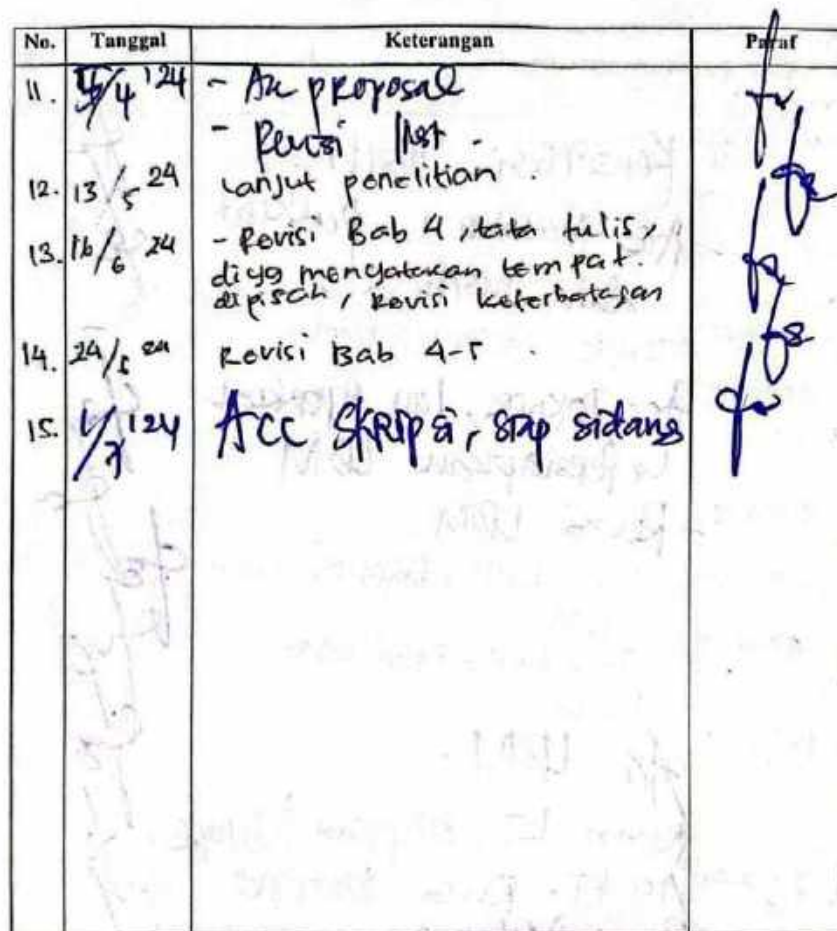 No. Tanggal Keterangan Paraf
11. /4 '24 - Acc proposal
- Revisi Inst.
12. 13/5 24 Lanjut penelitian.
13. 16/6 24 - Revisi Bab 4, tata tulis,
di yg menyatakan tempat.
dipisah, Revisi keterbatasan
14. 24/ 24 Revisi Bab 4-5.
15. 1/7 '24 ACC Skripsi, siap sidang